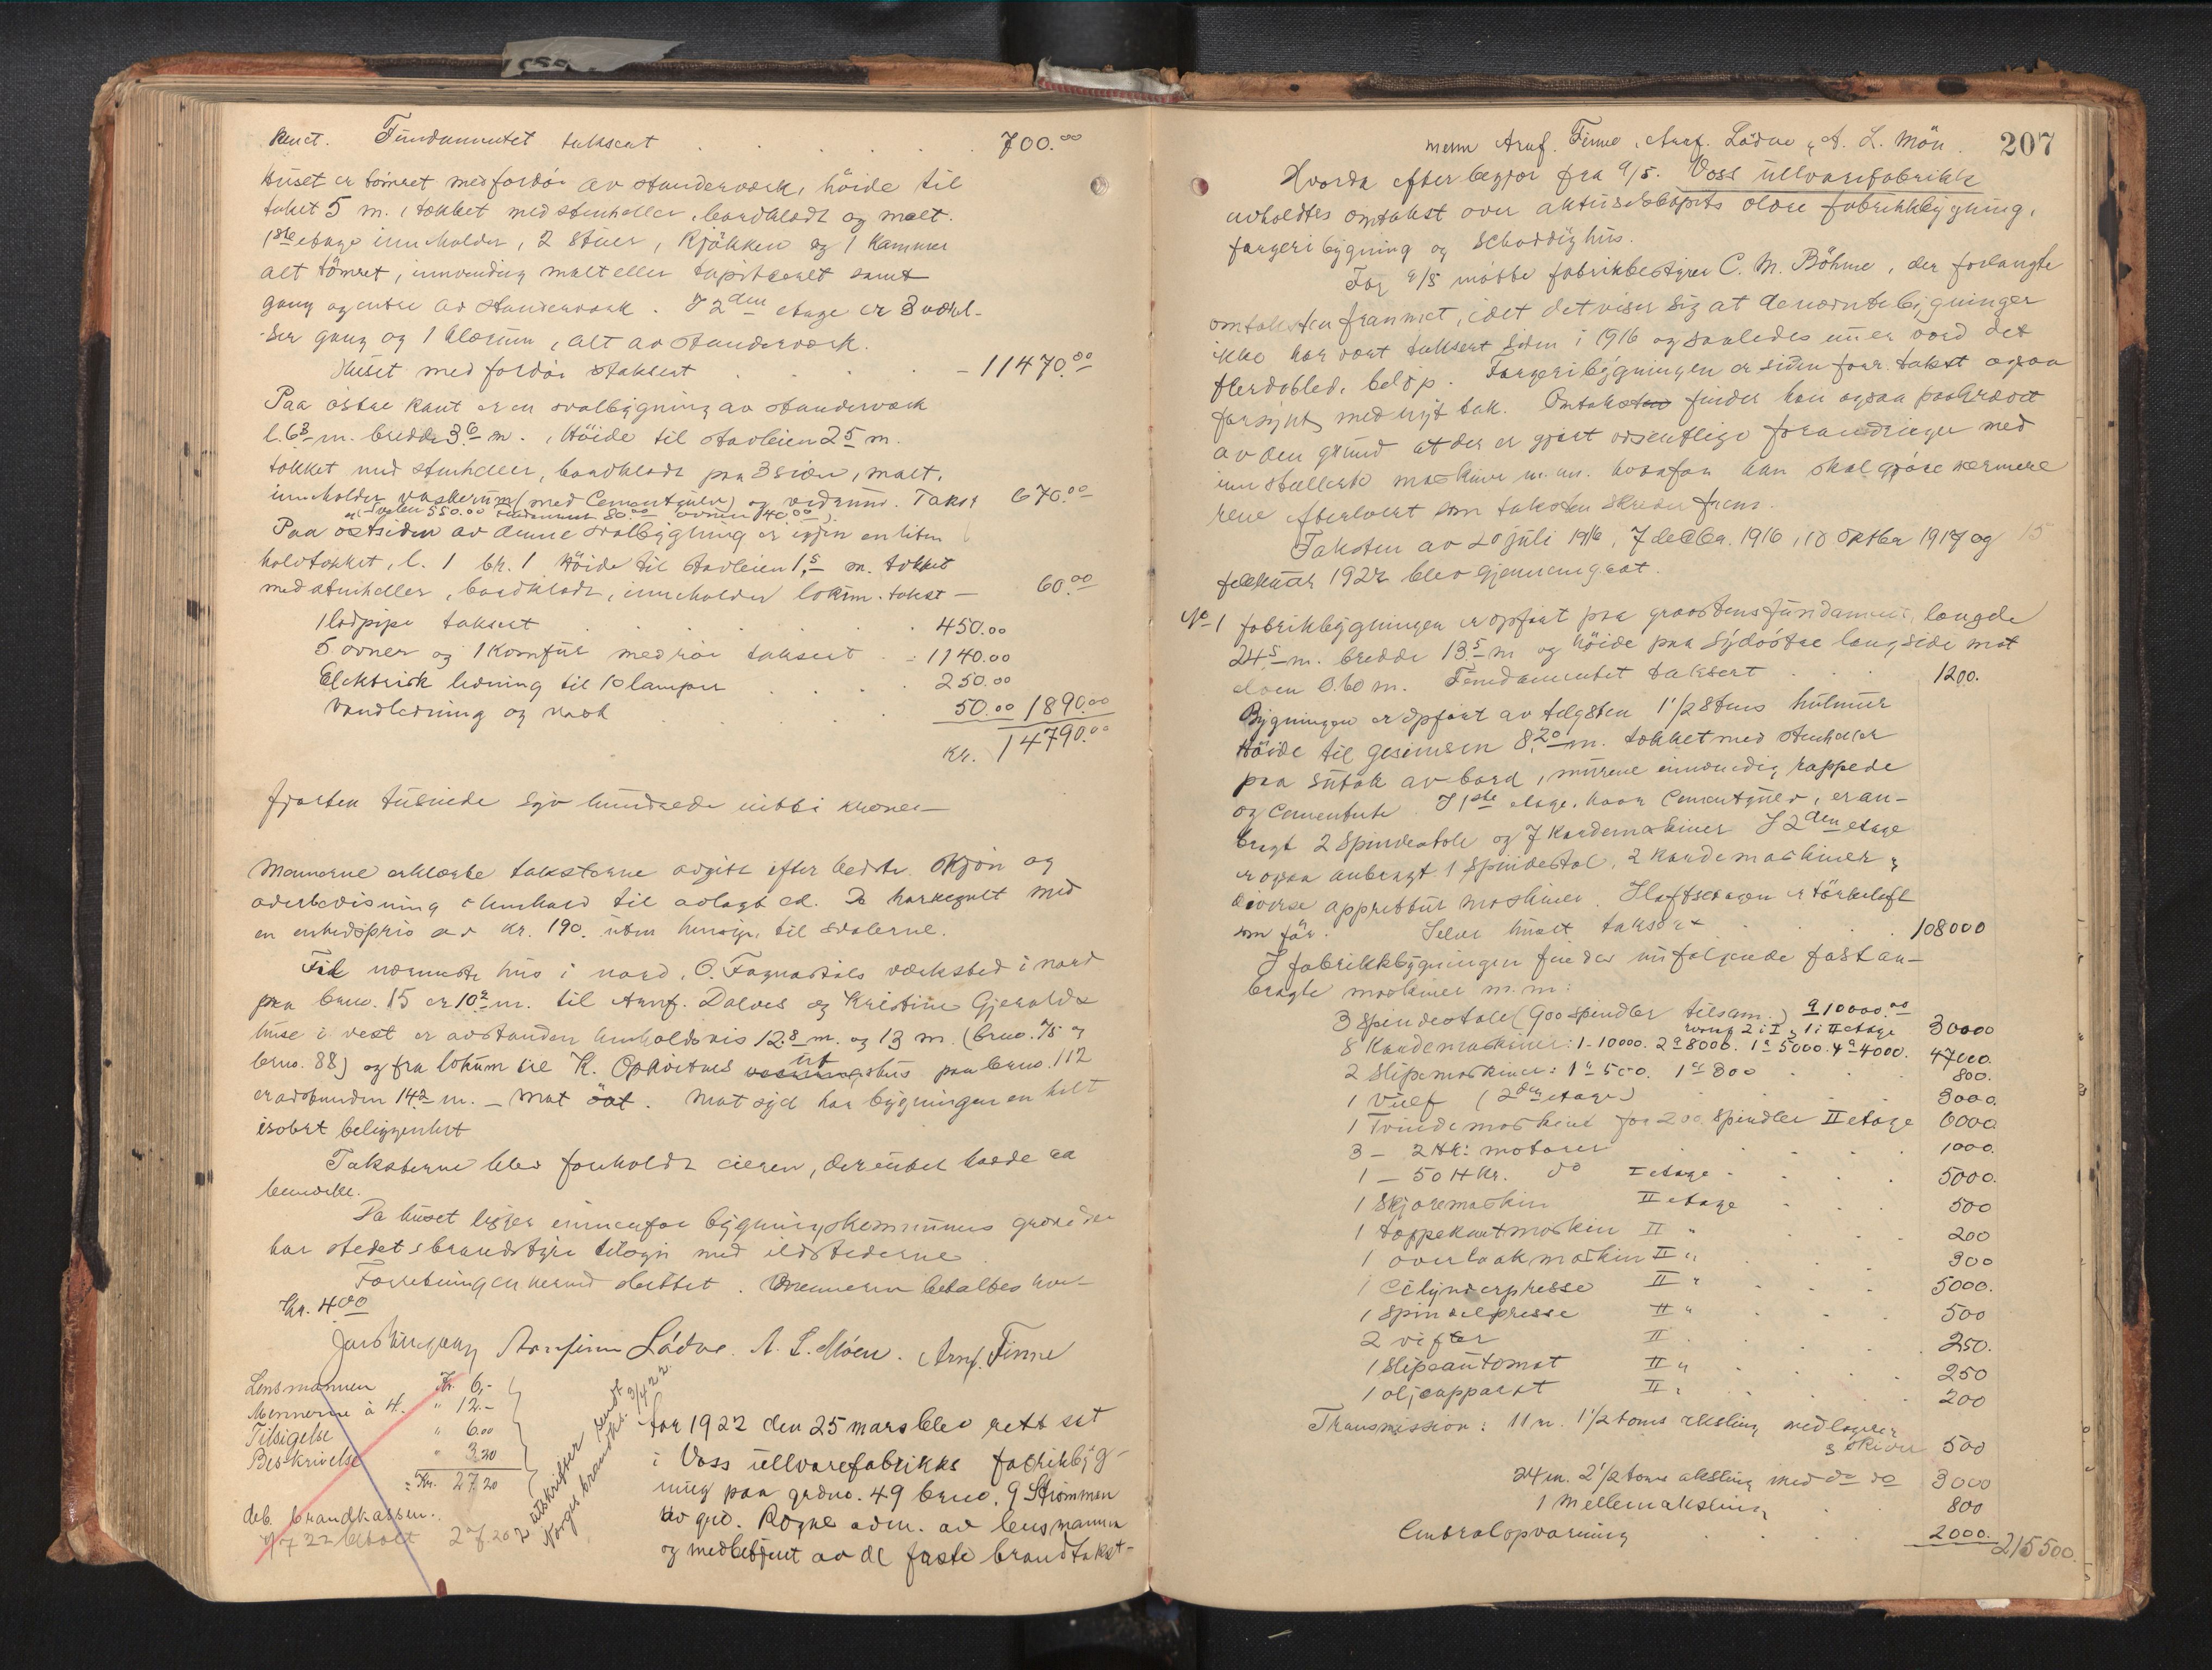 kuct. Fundamentet taksert 700.00
Huset er tömret med fordör av standerværk, höide til
taket 5 m. tækket med stenheller, bordklædt og malt.
1ste etage inneholder, 2 stuer, kjökken og 1 kammer
alt tömret, innvendig malt eller tapitseret samt
gang og entre av standerværk. I 2den etage er 3 værel-
ser gang og 1 klærum, alt av standerværk.
Huset med fordör taksert 11470.00
Paa östre kant er en svalbygning av standerværk
l. 6.3 m. bredde 3.6 m., Höide til stavleien 2.5 m.
tækket med stenheller, bordklædt paa 3 sider, malt,
inneholder vaskerum (med Cementgulv) og vedrum. Takst 670.00
svalen 550.00 fundament 80.00 ovnen 40.00)
Paa østsiden av denne svalbygning er igjen en liten
halvtækket, l. 1 br. 1 Höide til stavleien 1.5 m. tækket
med stenheller, bordklædt, inneholder lokum. takst 60.00
1 lodpipe taksert 450.00
5 ovner og 1 komfur med rör taksert 1140.00
Elektrisk ledning til 10 lamper 250.00
Vandledning og vask 50.00 1890.00
Kr. 14790.00
fjorten tusinde syv hundrede nitti kroner
Mennerne erklærte taksterne avgitt efter bedste skjön og
overbevisning i henhold til avlagt ed. De har regnet med
en enhedspris av kr. 190. uten hensyn til svalerne.
Til nærmeste hus i nord, O. Fagnastøls værksted i nord
paa brno. 15 er 10.2 m. til Arnf. Dalves og Kristine Gjeralds
huse i vest er avstanden henholdsvis 12.8 m. og 13 m. (brno. 75 og
brno. 88) og fra lokum til K. Opkvitnes uthus paa brno. 112
er avstanden 14.2 m. - mot öst. Mot syd har bygningen en helt
isolert beliggenhet
Taksterne blev foreholdt eieren, der intet hadde at
bemerke.
Da huset ligger innenfor bygningskommunens grænser
har stedets brandstyre tilsyn med ildstederne.
Forretningen hermed sluttet. Mennerne betaltes hver
Kr. 4.00
Arnfinn Lödve. A. L. Möen. Arnf. Finne
Lensmannen Kr. 6,-
Mennerne à 4. " 12.-
Tilsigelse " 6.00
Beskrivelse " 3.20
= Kr. 27.20
deb. brandkassen.
4/7 22 betalt 27.20
2 utskrifter sendt
Norges brandks. 3/4 22.
Aar 1922 den 25 mars blev rett sat
i Voss ullvarefabrikks fabrikkbyg-
ning paa grdno. 49 brno. 9 Strömmen
av grd. Rogne adm. av lensmannen
og medbetjent av de faste brandtakst-
207
menn Arnf. Finne, Arnf. Lödve, A. L. Mön.
Hvorda efter begjær fra 9/5. Voss ullvarefabrikk
avholdtes omtakst over aktieselskapets eldre fabrikkbygning,
fargeribygning og schoddighus.
For 9/5 møtte fabrikbestyrer C. M. Böhme, der forlangte
omtaksten fremmet, idet det viser sig at de nævnte bygninger
ikke har vært taksert siden i 1916 og saaledes nu er værd det
flerdobbled. belöp. Fargeribygningen er siden forr. takst ogsaa
forsynt med nyt tak. Omtakst finder han ogsaa paakrævet
av den grund at der er gjort væsentlige forandringer med
innstallerte maskiner m.m. hvorfor han skal gjöre nærmere
rede efterhvert som taksten skrider frem.
Taksten av 20 juli 1916, 7 decbr. 1916, 10 oktbr 1917 og 15
februar 1922 blev gjennemgaat.
No 1 fabrikbygningen er opfört paa graastensfundament, længde
24.5 m. bredde 13.5 m og höide paa sydöstre langside mot
elven 0.60 m. Fundamentet taksert 1200.
Bygningen er opfört av teglsten 1 1/2 stens hulmur
Höide til gesimsen 8.20 m. tækket med stenheller
paa sutak av bord, murene innvendig rappede
og cementerte. I 1ste etage, hvor Cementgulv, er an-
bragt 2 spindestole og 7 kardemaskiner I 2den etage
er ogsaa anbragt 1 spindestol, 2 kardemaskiner &
diverse apprettur maskiner. I loftsetagen er törkeloft
som för. Selve huset taksert 108000
I fabrikkbygningen findes nu følgende fast an-
bragte maskiner m.m:
3 spindestole (900 spindler tilsam.) a 10000.00
hvorav 2 i I & 1 i II etage 30000
8 Kardemaskiner: 1 - 10000. 2 a 8000. 1 a 5000. 4 a 4000. 47000.
2 Slipemaskiner: 1 a 500. 1 a 300 800.
1 Vulf (2den etage) 3000.
1 Tvindemaskine for 200 spindler II etage 6000
3 - 2 Hk: motorer 1000.
1 - 50 H Kr. do I etage 5000.
1 Skjæremaskin II etage 500
1 tæppekantmaskin II " 200
1 overlaakmaskin II " 300
1 Cilynderpresse II " 5000.
1 Spindelpresse II " 500
2 vifter II 250.
1 Slipeautomat II " 250
1 oljeapparat II " 200
Transmission: 11 m. 1 1/2 toms aksling med lagere
& skiver 500
24 m. 2 1/2 toms aksling med do do 3000
1 mellemaksling 800
Centralopvarming 2000. 215500.